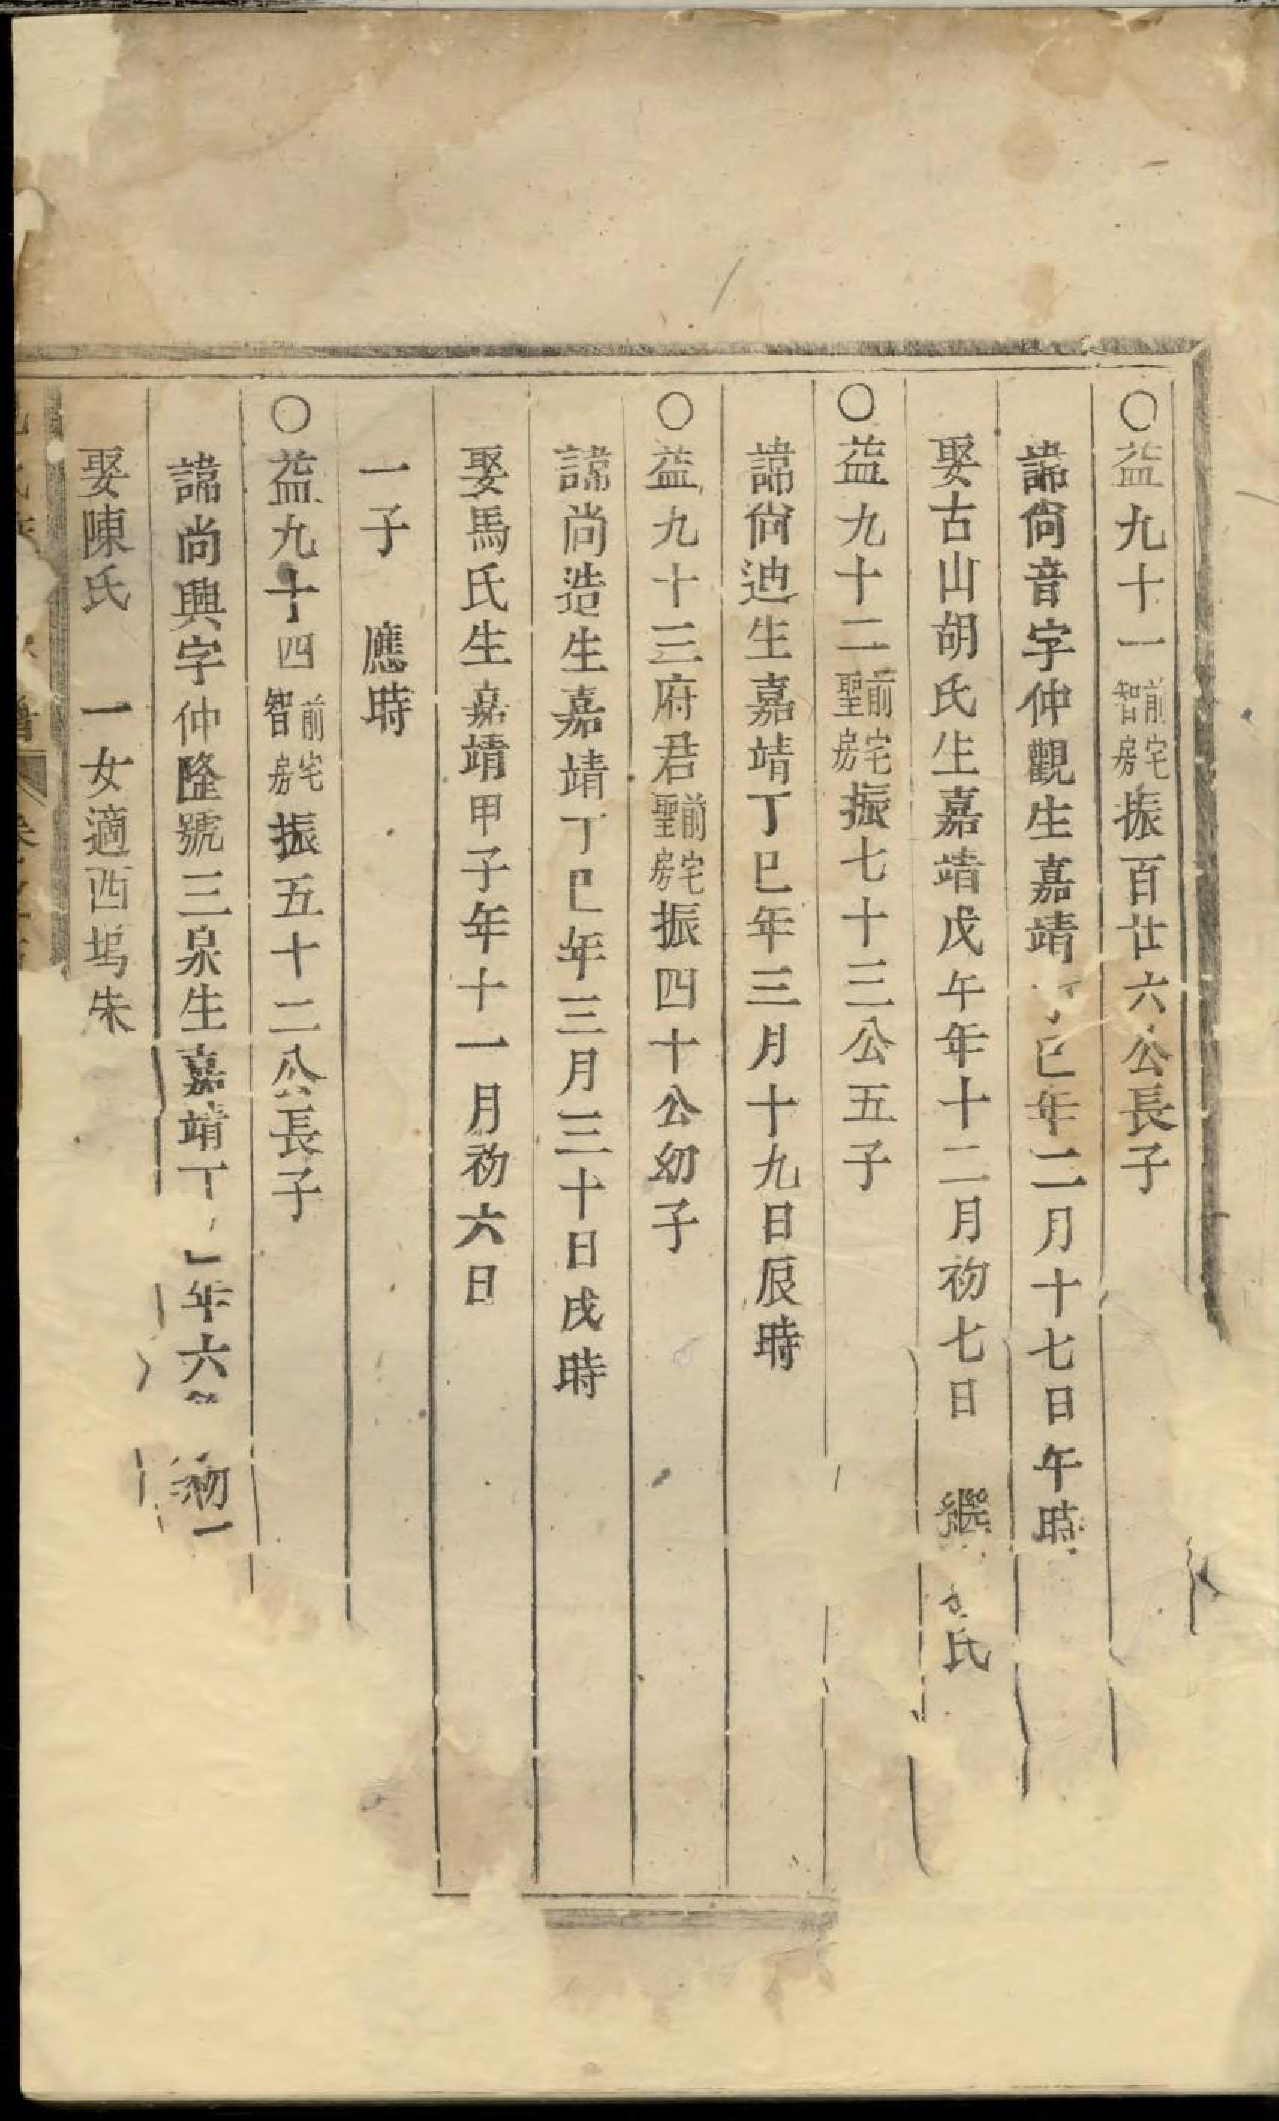 ○益九十一前宅智房振百廿六公長子
諱尙音字仲觀生嘉靖丁巳年二月十七日午時
娶古山胡氏生嘉靖戊午年十二月初七日 繼 氏
○益九十二前宅聖房振七十三公五子
諱尙迪生嘉靖丁巳年三月十九日辰時
○益九十三府君前宅聖房振四十公幼子
諱尚造生嘉靖丁巳年三月三十日戌時
娶馬氏生嘉靖甲子年十一月初六日
一子 應時
○益九十四前宅智房振五十二公長子
諱尚興字仲隆號三泉生嘉靖丁 年六 初一
娶陳氏 一女適西塢朱